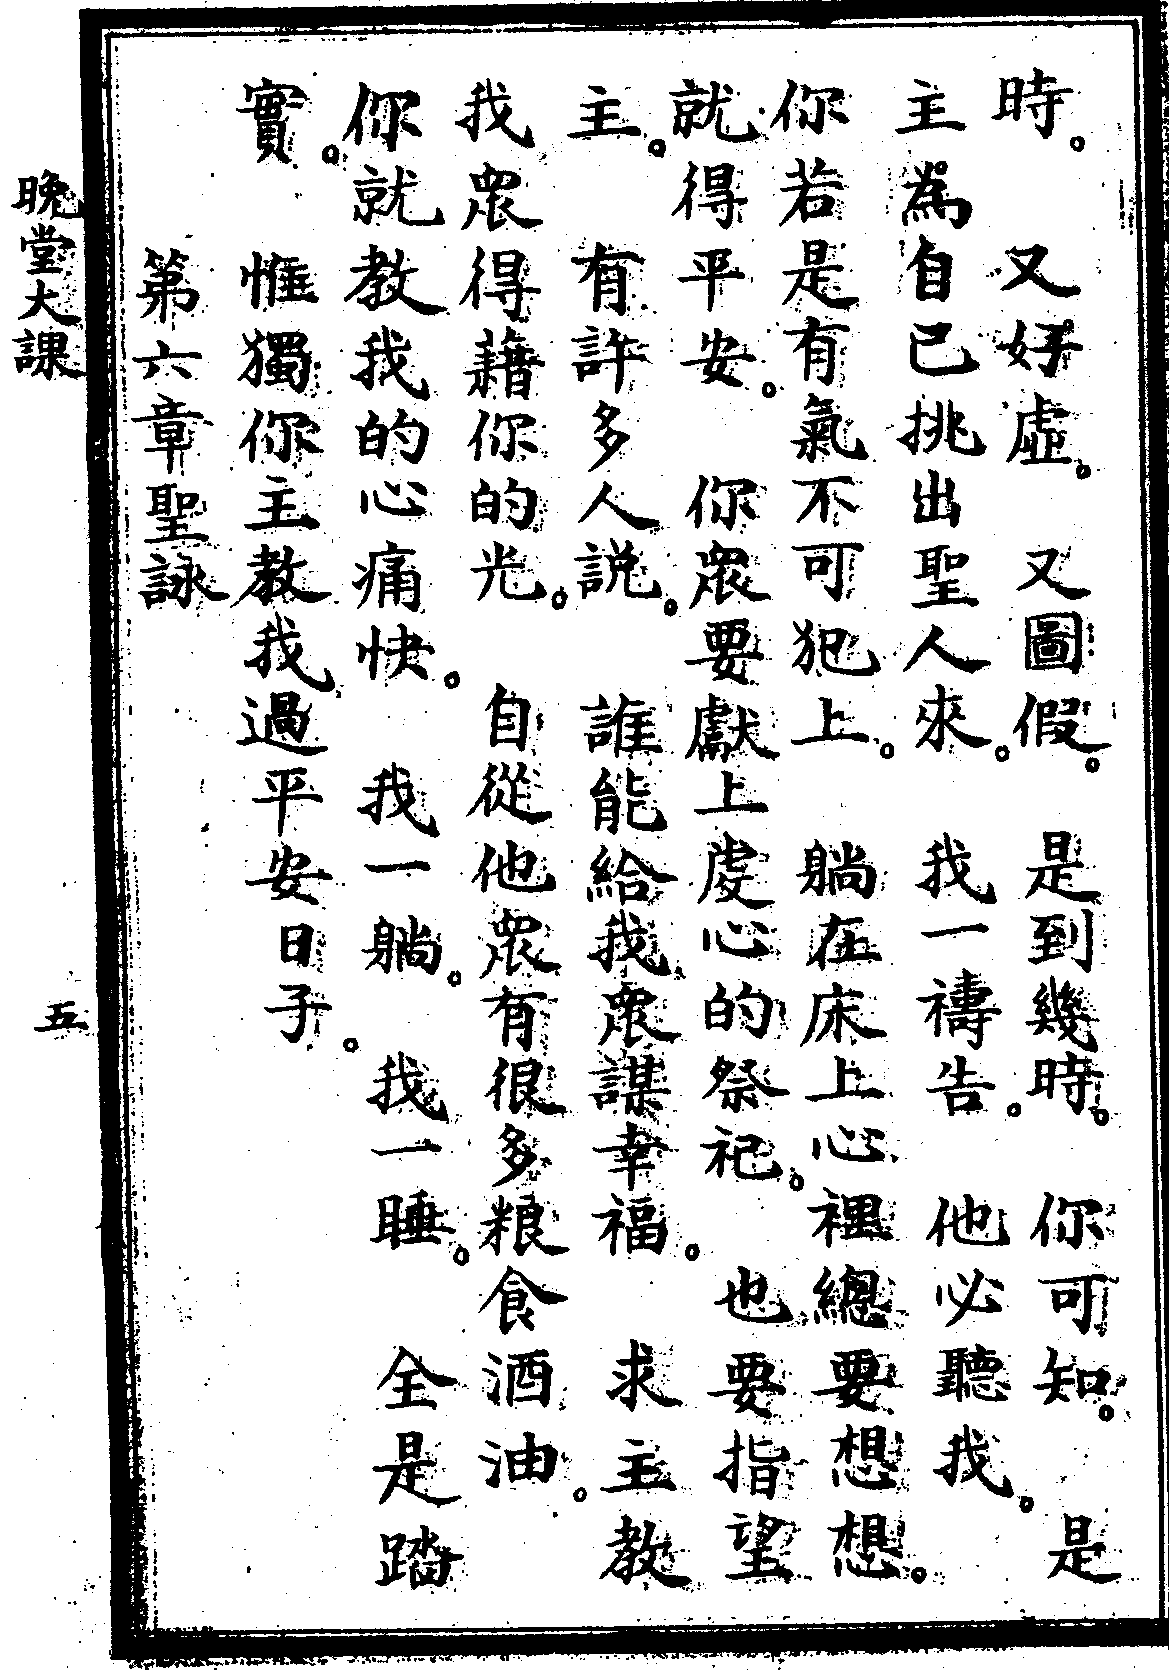 時。又好虛。又圖假。是到幾時。你可知。是
主為自己挑出聖人來。我一禱告。他必聽我。
你若是有氣不可犯上。躺在床上心裡總要想想。
就得平安。你眾要獻上虔心的祭祀。也要指望
主。有許多人説。誰能給我眾謀幸福。求主教
我眾得藉你的光。自從他眾有很多粮食酒油。
你就教我的心痛快。我一躺。我一睡。全是踏
實。惟獨你主教我過平安日子。
第六章聖詠
晚堂大課
五